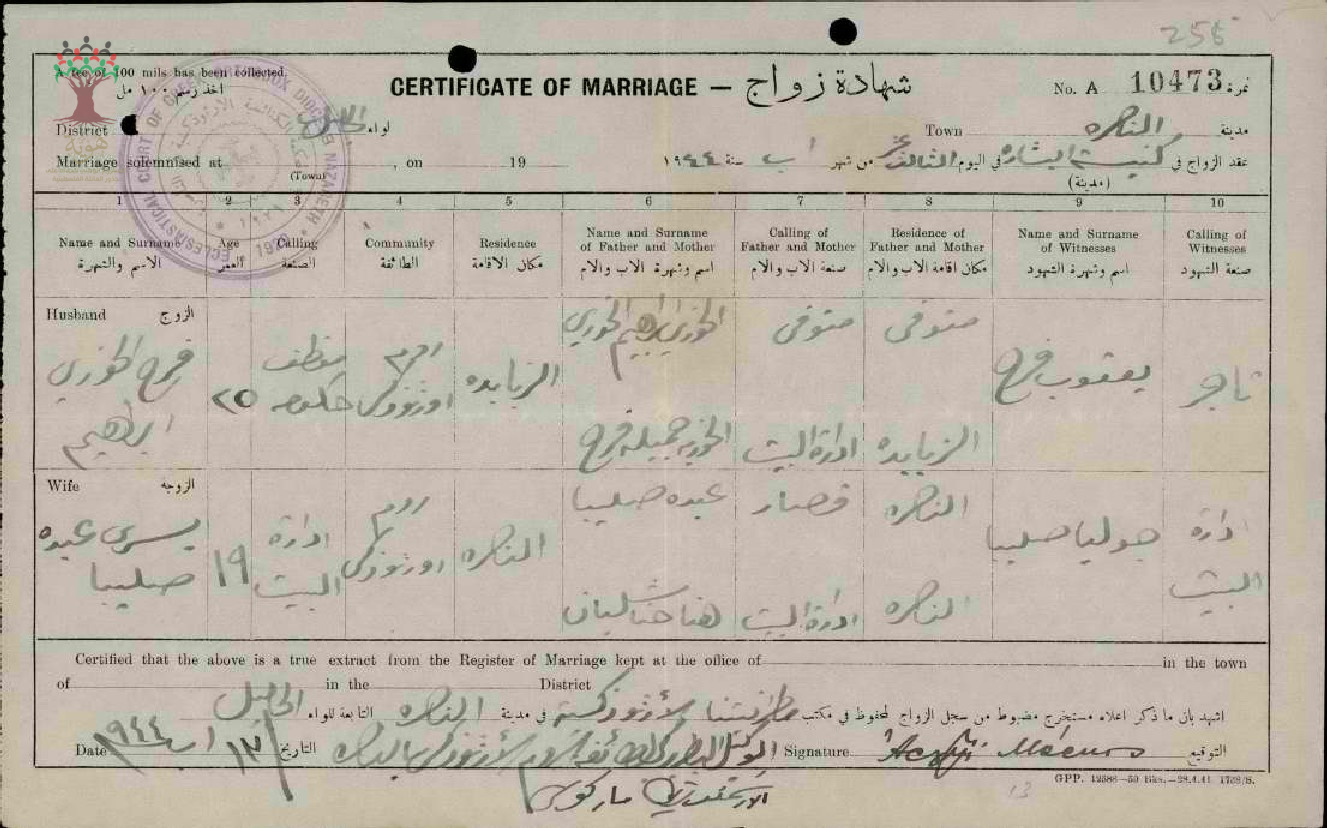 256
A fee of 100 mils has been collected.
اخذ رسم ١٠٠ مل
CERTIFICATE OF MARRIAGE — شهادة زواج
No. A 10473 نمرة
District لواء الجليل
Town الناصره مدينة
Marriage solemnised at , on 19
(Town)
عقد الزواج في كنيسة البشاره في اليوم الثالث عشر من شهر اب سنة ١٩٤٤
(مدينة)
ECCLESIASTICAL COURT OF ORTHODOX NAZARETH
هوية
1 2 3 4 5 6 7 8 9 10
Name and Surname
الاسم والشهرة
Age
العمر
Calling
الصنعة
Community
الطائفة
Residence
مكان الاقامة
Name and Surname of Father and Mother
اسم وشهرة الاب والام
Calling of Father and Mother
صنعة الاب والام
Residence of Father and Mother
مكان اقامة الاب والام
Name and Surname of Witnesses
اسم وشهرة الشهود
Calling of Witnesses
صنعة الشهود
Husband الزوج
فرح الخوري ابراهيم
٢٥
موظف حكومه
روم اورثوذكس
الخوري ابراهيم الخوري
متوفى
متوفى
يعقوب فرح
تاجر
الخوريه جميله فرح
ادارة البيت
Wife الزوجه
يسرى عبده صليبا
١٩
ادارة البيت
روم اورثوذكس
الناصره
عبده صليبا
الناصره
جوليا صليبا
ادارة البيت
ادارة البيت
الناصره
Certified that the above is a true extract from the Register of Marriage kept at the office of in the town
of in the District
اشهد بان ما ذكر اعلاه مستخرج مضبوط من سجل الزواج المحفوظ في مكتب الأرثوذكسية في مدينة الناصره التابعة للواء الجليل
Date ١٣ اب ١٩٤٤ التاريخ
Signature التوقيع
GPP. 12586—50 Bks.—28.4.41
13